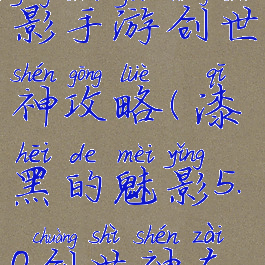 影手游创世
shén gōng lüè qī
神攻略(漆
hēi de mèi yǐng
黑的魅影5.
chuàng shì shén zài
0创世神在